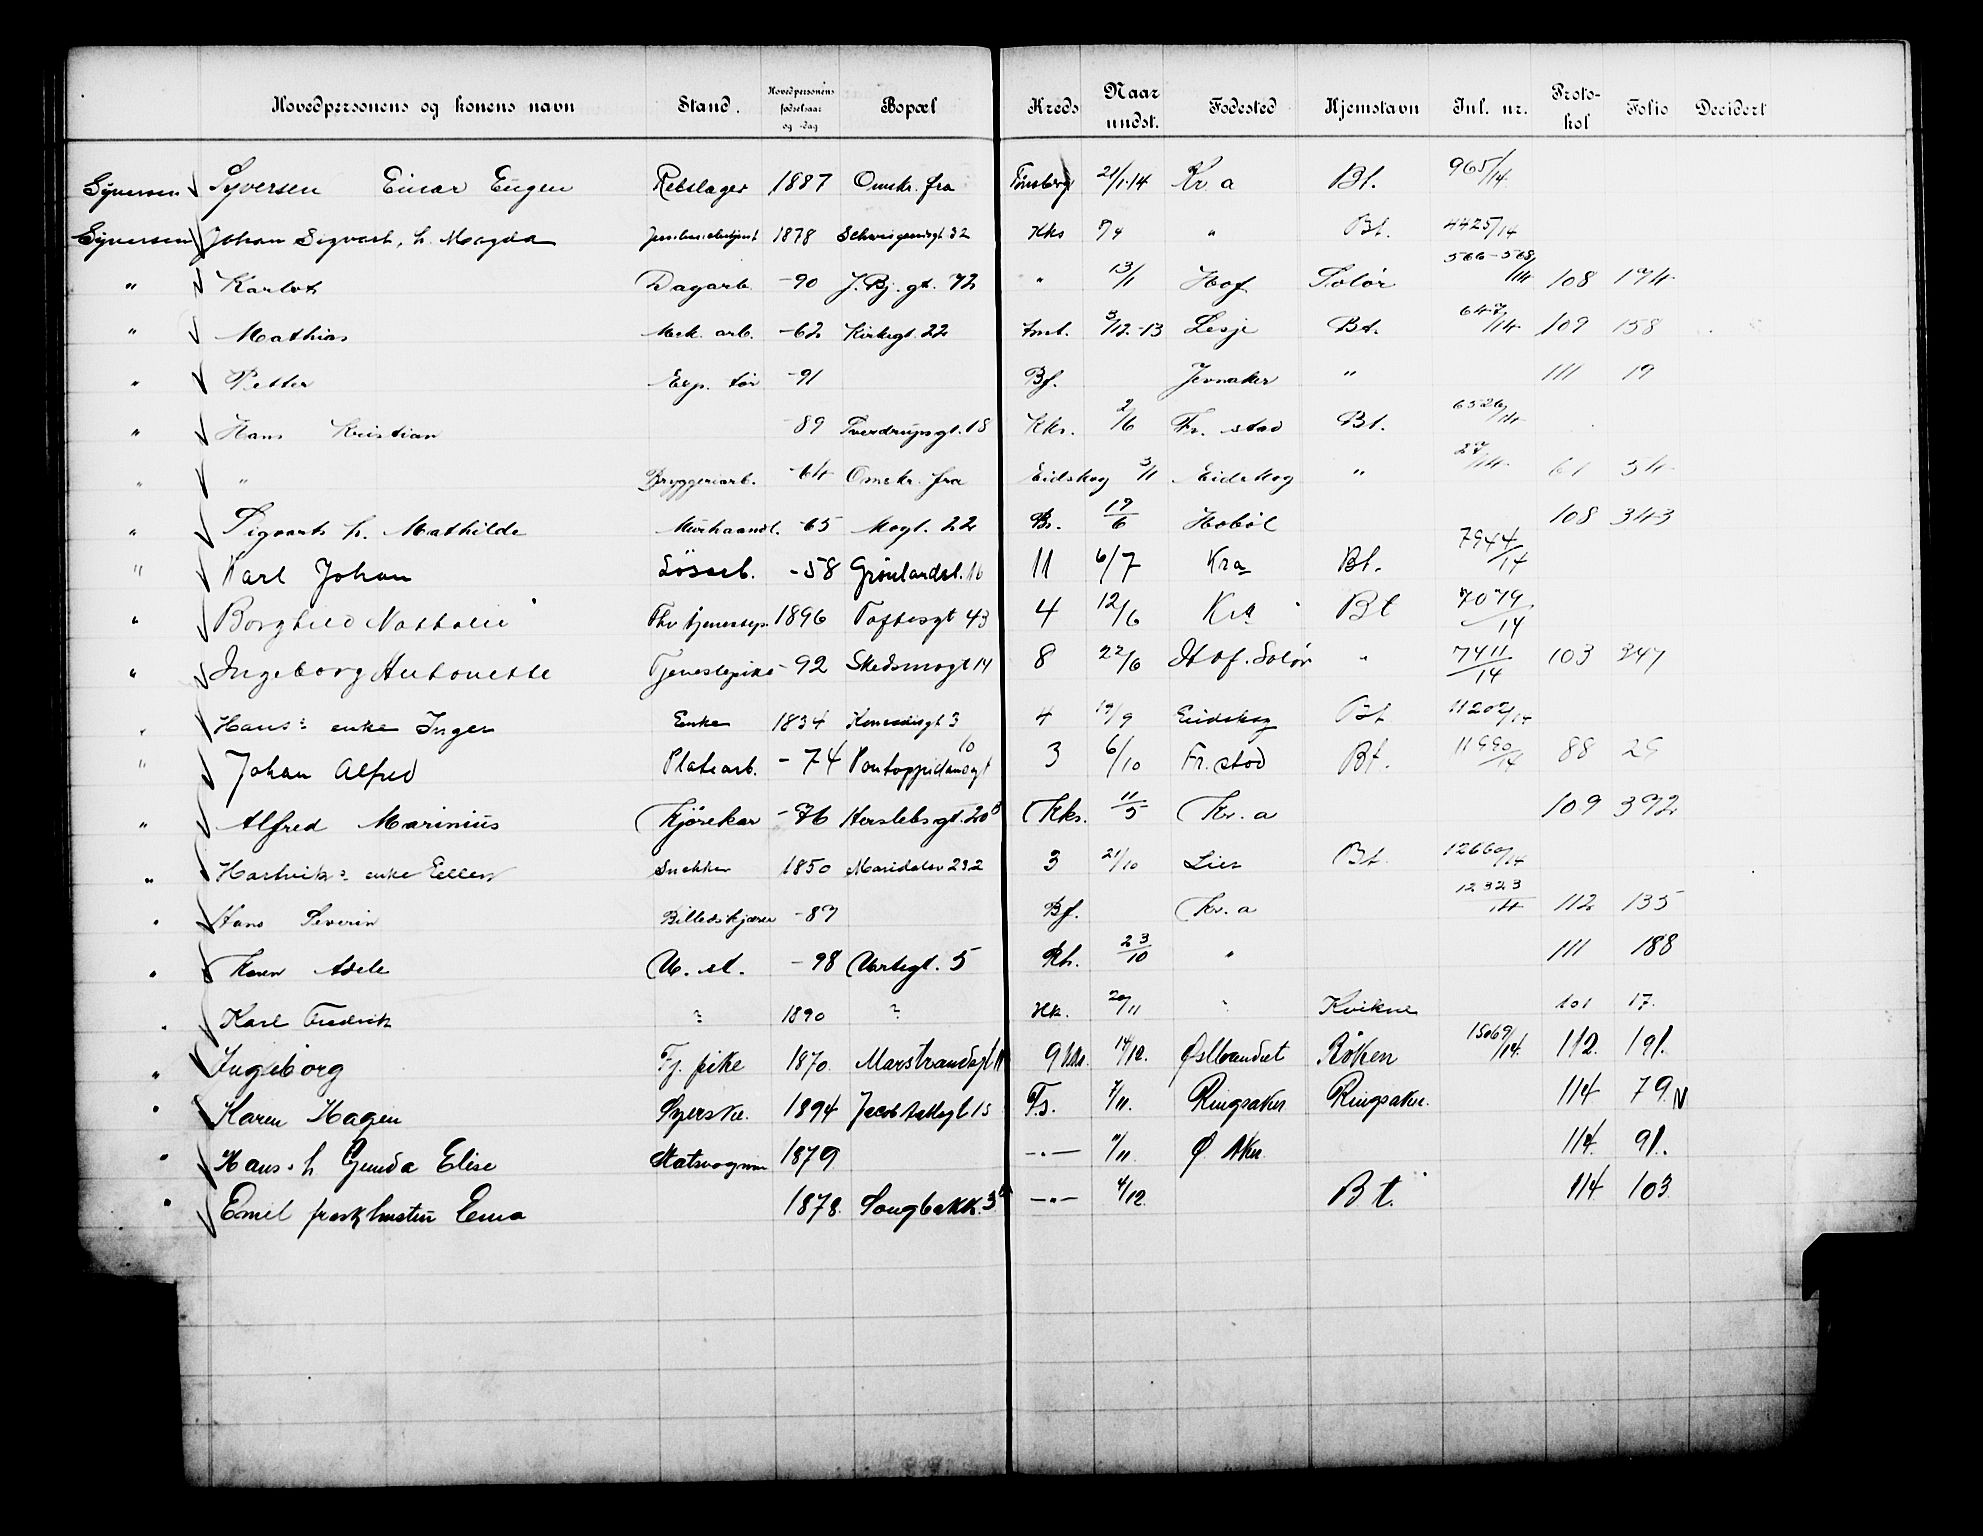 Hovedpersonens og konens navn Stand. Hovedpersonens fødselsaar og -dag Bopæl Kreds Naar undst. Fødested Hjemstavn Jnl. nr. Protokol Folio Decidert
Syversen Syversen Einar Eugen Rebslager 1887 Omskr. fra Tønsberg 21/1-14 Kr a Bt. 965/14.
Syversen Johan Sigvart, h. Magda 1878 Schweigaardsgt 32 Kks 7/4 " Bt. 4425/14
" Karlot Dagarb. -90 J. Bj. gt. 72 " 13/1 Hof Solør 566-568/14 108 174
" Mathias Mek. arb. -62 Kirkegt. 22 Amt. 3/12-13 Lesje Bt. 647/14 109 158
" Petter Exp. tør -91 Bf. Jevnaker " 111 19
" Hans Kristian -89 Sverdrupsgt. 18 Kks. 2/6 Fr. stad Bt. 6526/14
" " Bryggeriarb. -64 Omskr. fra Eidskog 3/11 Eidskog " 27/14 61 54
" Sigvart h. Mathilde Murhaandl. -65 Mogt. 22 Br. 17/6 Hobøl 108 343
" Karl Johan Løsarb. -58 Grønlandsl. 16 11 6/7 Kra Bt. 7944/14
" Borghild Nathalie Fhv tjenestep. 1896 Toftesgt 43 4 12/6 Kra Bt 7079/14
" Ingeborg Antonette Tjenestepike -92 Skedsmogt 14 8 22/6 Hof. Solør " 7411/14 103 247
" Hans's enke Inger Enke 1834 Konradisgt 3 4 19/9 Eidskog Bt 11202/14
" Johan Alfred Platearb. -74 Pontoppidansgt 10 3 6/10 Fr. stad Bt. 11990/14 88 29
" Alfred Marinius Kjørekar -76 Herslebsgt. 20 B Kks. 11/5 Kr. a 109 392
" Hartvik's enke Ellen Snekker 1850 Maridalsv 232 3 21/10 Lier Bt. 12660/14
" Hans Severin Billedskjærer -87 Bf. Kr. a 12323/14 112 135
" Karen Adele U. st. -98 Urtegt. 5 Rh. 23/10 " 111 188
" Karl Fredrik ? 1890 ? Hk. 20/11 " Kvikne 101 17.
" Ingeborg Tj. pike 1870. Marstrandsgt 11 9 Kks. 14/12. Røken 15069/14. 112. 191.
" Karen Hagen Syerske. 1894 Jacob Aallsgt 15 Fs. 7/11. Ringsaker Ringsaker. 114 79. N
" Hans. h Gunda Elise 1879 -"- 11/11. Ø. Aker 114. 91.
" Emil frask. hustru Ema 1878. Sougbakk. 3 -"- 4/12. Bt. 114 103